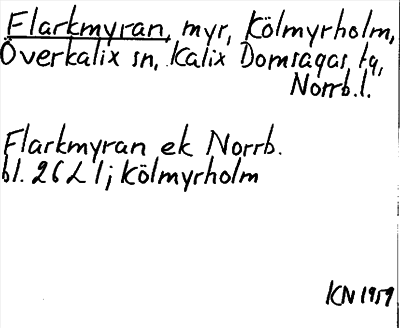 Flarkmyran, myr, Kölmyrholm,
Överkalix sn, Kalix Domsagas tg,
Norrb.l.
Flarkmyran ek Norrb.
bl. 26 L 1; Kölmyrholm
KN 1959